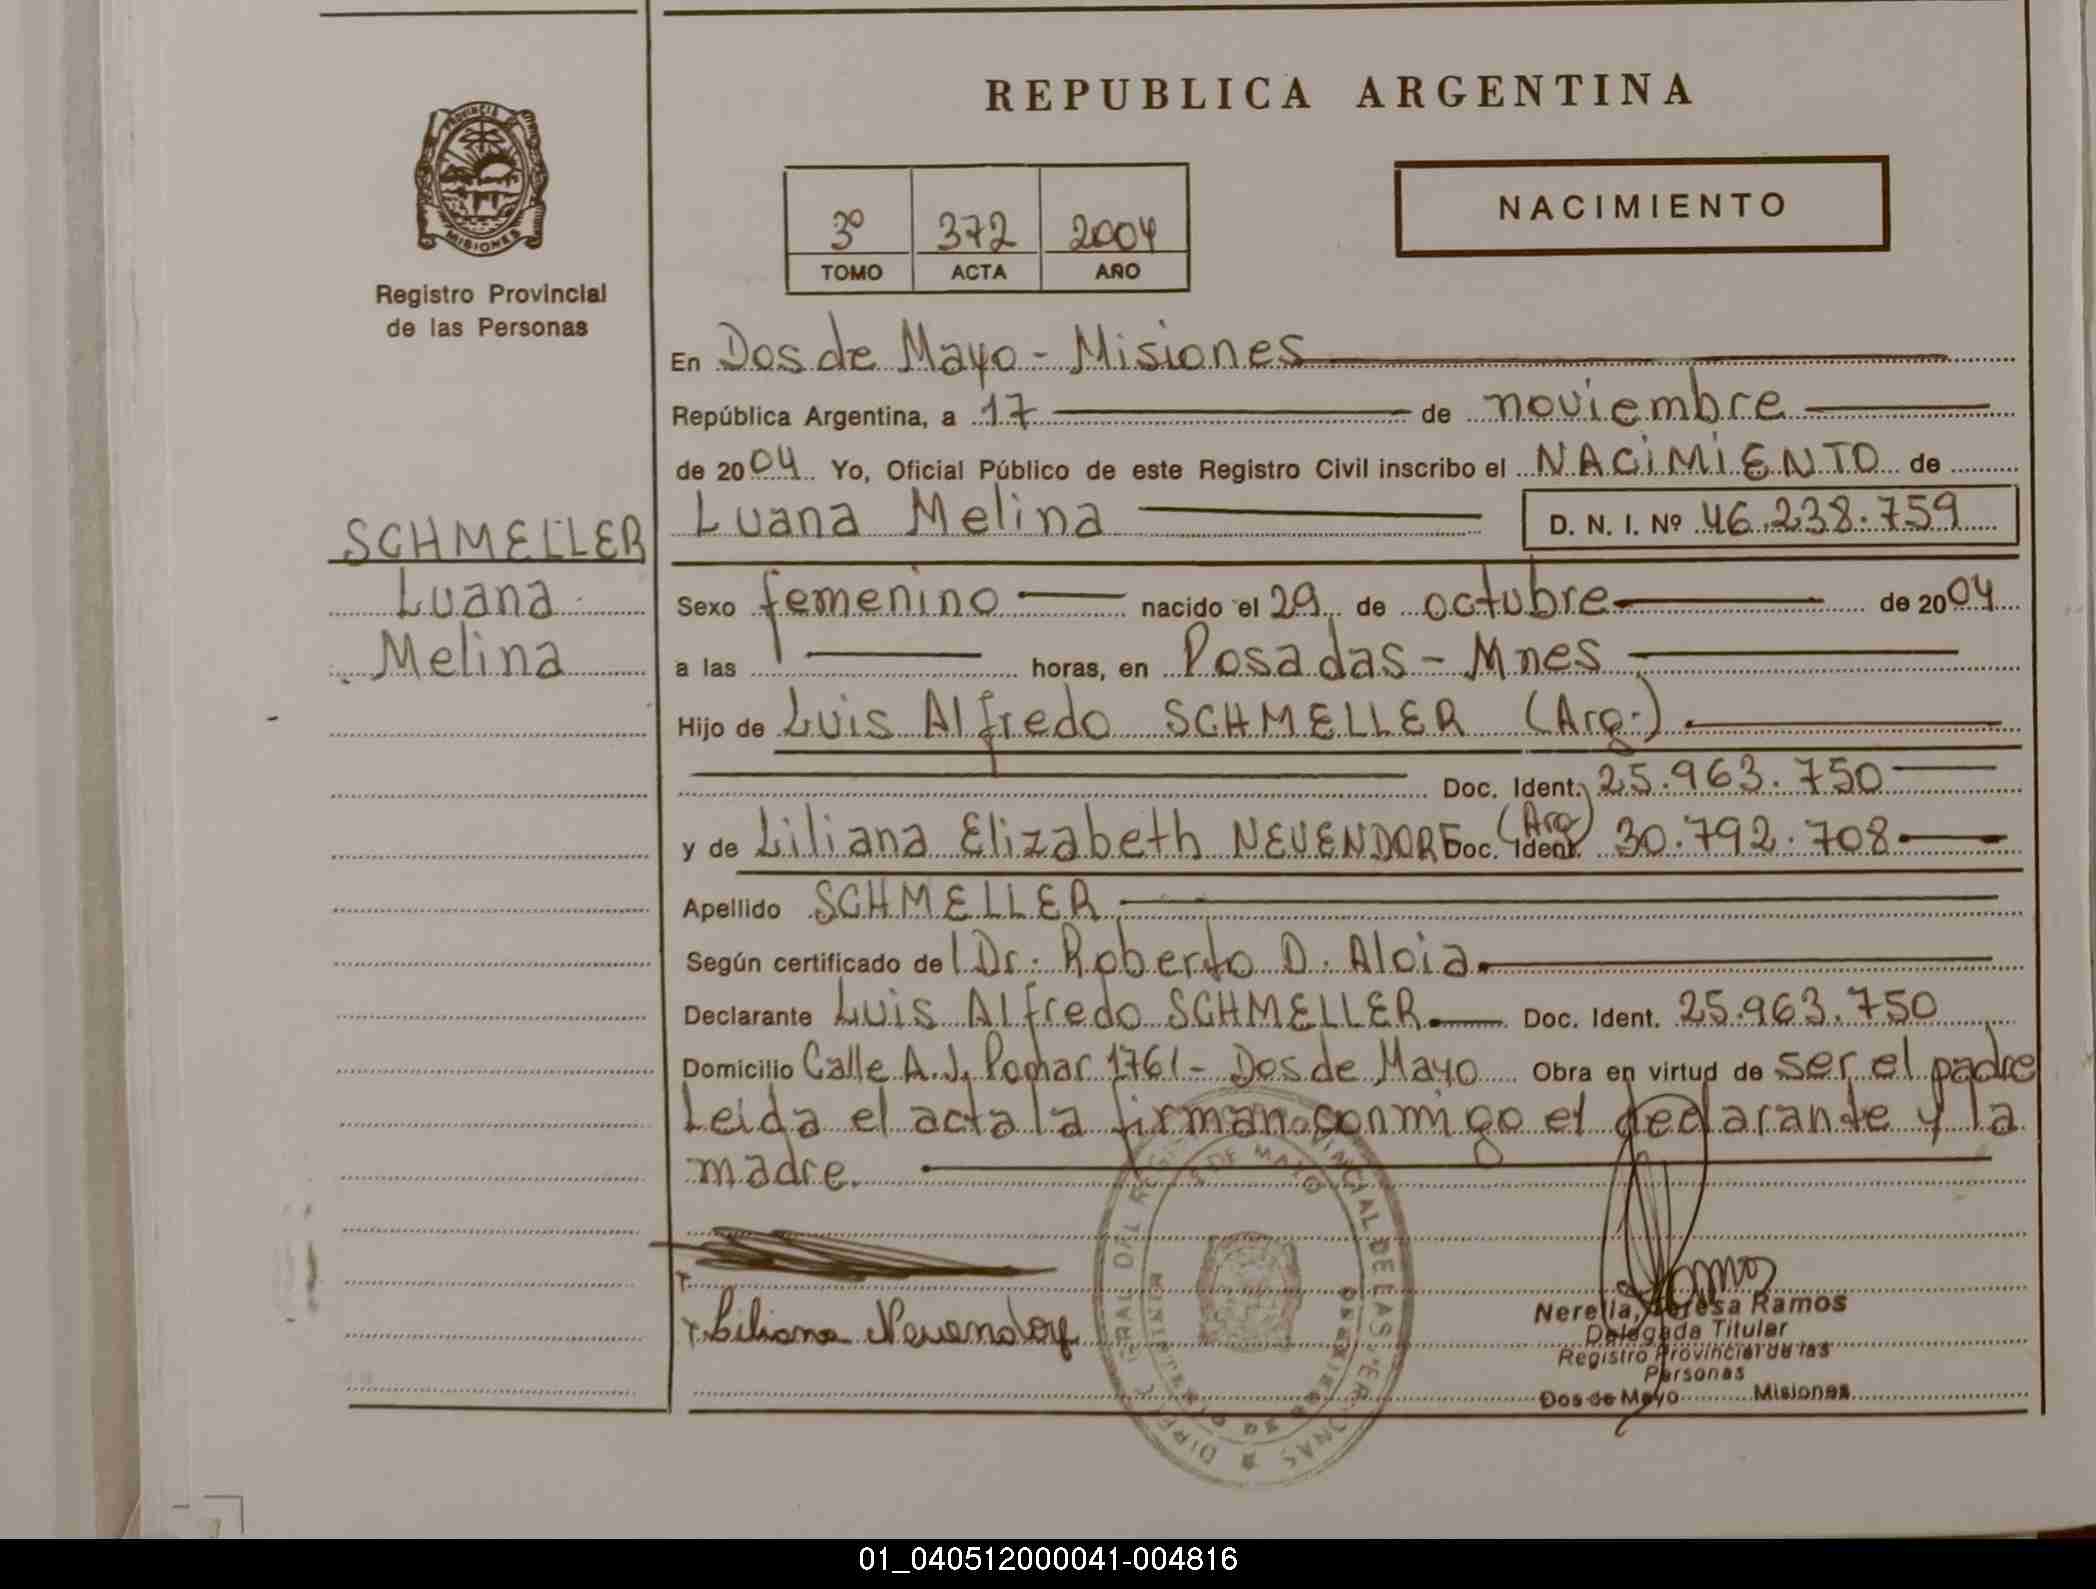 REPUBLICA ARGENTINA
PROVINCIA DE
MISIONES
Registro Provincial
de las Personas
3º 372 2004
TOMO ACTA AÑO
NACIMIENTO
En Dos de Mayo - Misiones
República Argentina, a 17 de noviembre
de 2004 Yo, Oficial Público de este Registro Civil inscribo el NACIMIENTO de
SCHMELLER
Luana
Melina
Luana Melina D. N. I. Nº 46.238.759
Sexo femenino nacido el 29 de octubre de 2004
a las horas, en Posadas - Mnes
Hijo de Luis Alfredo SCHMELLER (Arg.)
Doc. Ident. 25.963.750
y de Liliana Elizabeth NEUENDORF (Arg) Doc. Ident. 30.792.708
Apellido SCHMELLER
Según certificado del Dr. Roberto D. Aloia
Declarante Luis Alfredo SCHMELLER Doc. Ident. 25.963.750
Domicilio Calle A.J. Pomar 1761 - Dos de Mayo Obra en virtud de ser el padre
Leida el acta la firman conmigo el declarante y la
madre.
Liliana Neuendorf
Ramos
Nerella, Teresa Ramos
Delegada Titular
Registro Provincial de las
Personas
Dos de Mayo Misiones
01_040512000041-004816